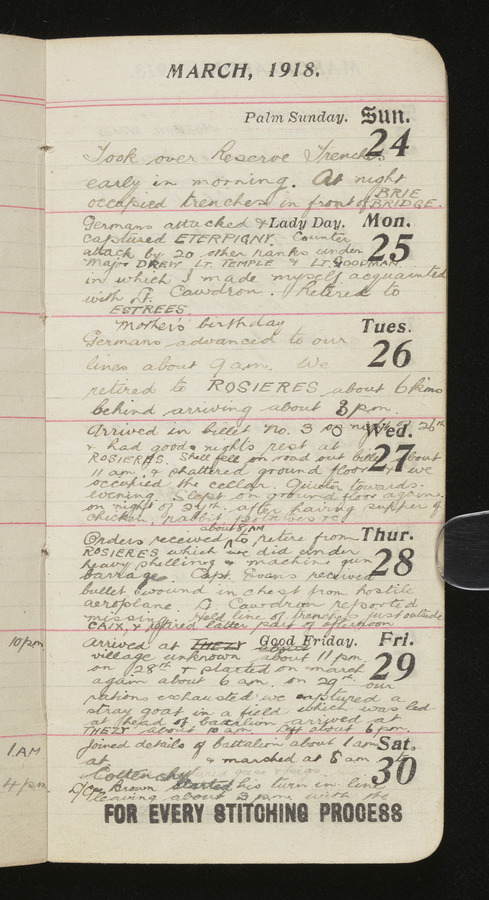 MARCH, 1918.
Palm Sunday. Sun.
24
Took over Reserve Trenches
early in morning. At night
occupied trenches in front of BRIE BRIDGE.
Germans attacked & Lady Day. Mon.
25
captured ETERPIGNY. Counter
attack by 20 other ranks under
Major DREW LT. TEMPLE & LT. GOODMAN.
in which I made myself acquainted
with Lt. Cawdron. Retired to
ESTREES.
Mother's birthday Tues.
26
Germans advanced to our
lines about 9 am. We
retired to ROSIERES about 6 kims
behind arriving about 3 pm.
Arrived in billet No. 3 on night of 26th Wed.
27
& had good nights rest at
ROSIERES. Shell fell on road out billet about
11 am. & shattered ground floor & we
occupied the cellar. Quieter towards
evening. Slept on ground floor again
on night of 27th after having supper of
chicken, rabbit potatoes
about 8 AM
Orders received to retire from Thur.
28
ROSIERES which we did under
heavy shelling & machine gun
barrage. Capt. Evans received
bullet wound in chest from hostile
aeroplane. Lt Cawdron reported
missing. Held line of trenches just outside
CAIX, & retired latter part of afternoon
10 pm Arrived at THEZY Good Friday. Fri.
29
village unknown about 11 pm
on 28th & started on march
again about 6 am. on 29th. our
rations exhausted we captured a
stray goat in a field which was led
at head of battalion arrived at
THEZY about 10 am. Off about 6 pm.
1 AM Joined details of battalion about 1 am Sat.
30
at & marched at 8 am to
Cottenchy
4 pm L/Cpl Brown started his turn in line
leaving about 3 pm. with the
FOR EVERY STITCHING PROCESS